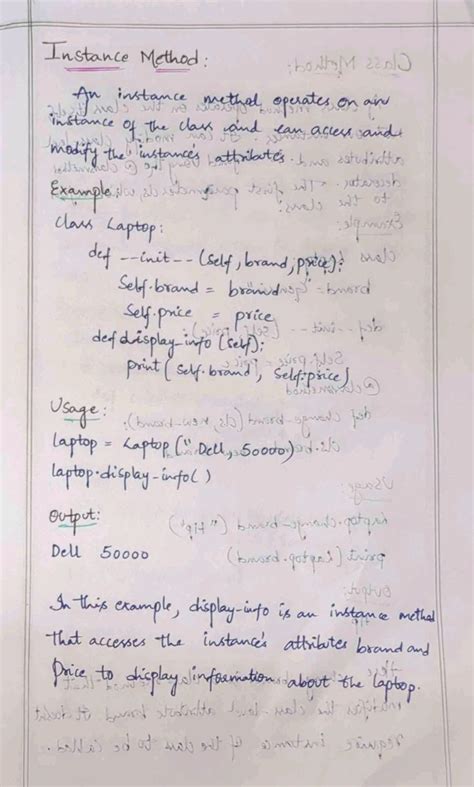 Instance Method:
An instance method operates on an
instance of the class and can access and
modify the instance's attributes.
Example:
Class Laptop:
def --init-- (Self, brand, price):
Self.brand = brand
Self.price = price
def display_info (Self):
print (Self.brand, Self.price)
Usage:
laptop = Laptop ("Dell, 50000)
laptop.display-info()
Output:
Dell 50000
In this example, display-info is an instance method
that accesses the instance's attributes brand and
Price to display information about the laptop.